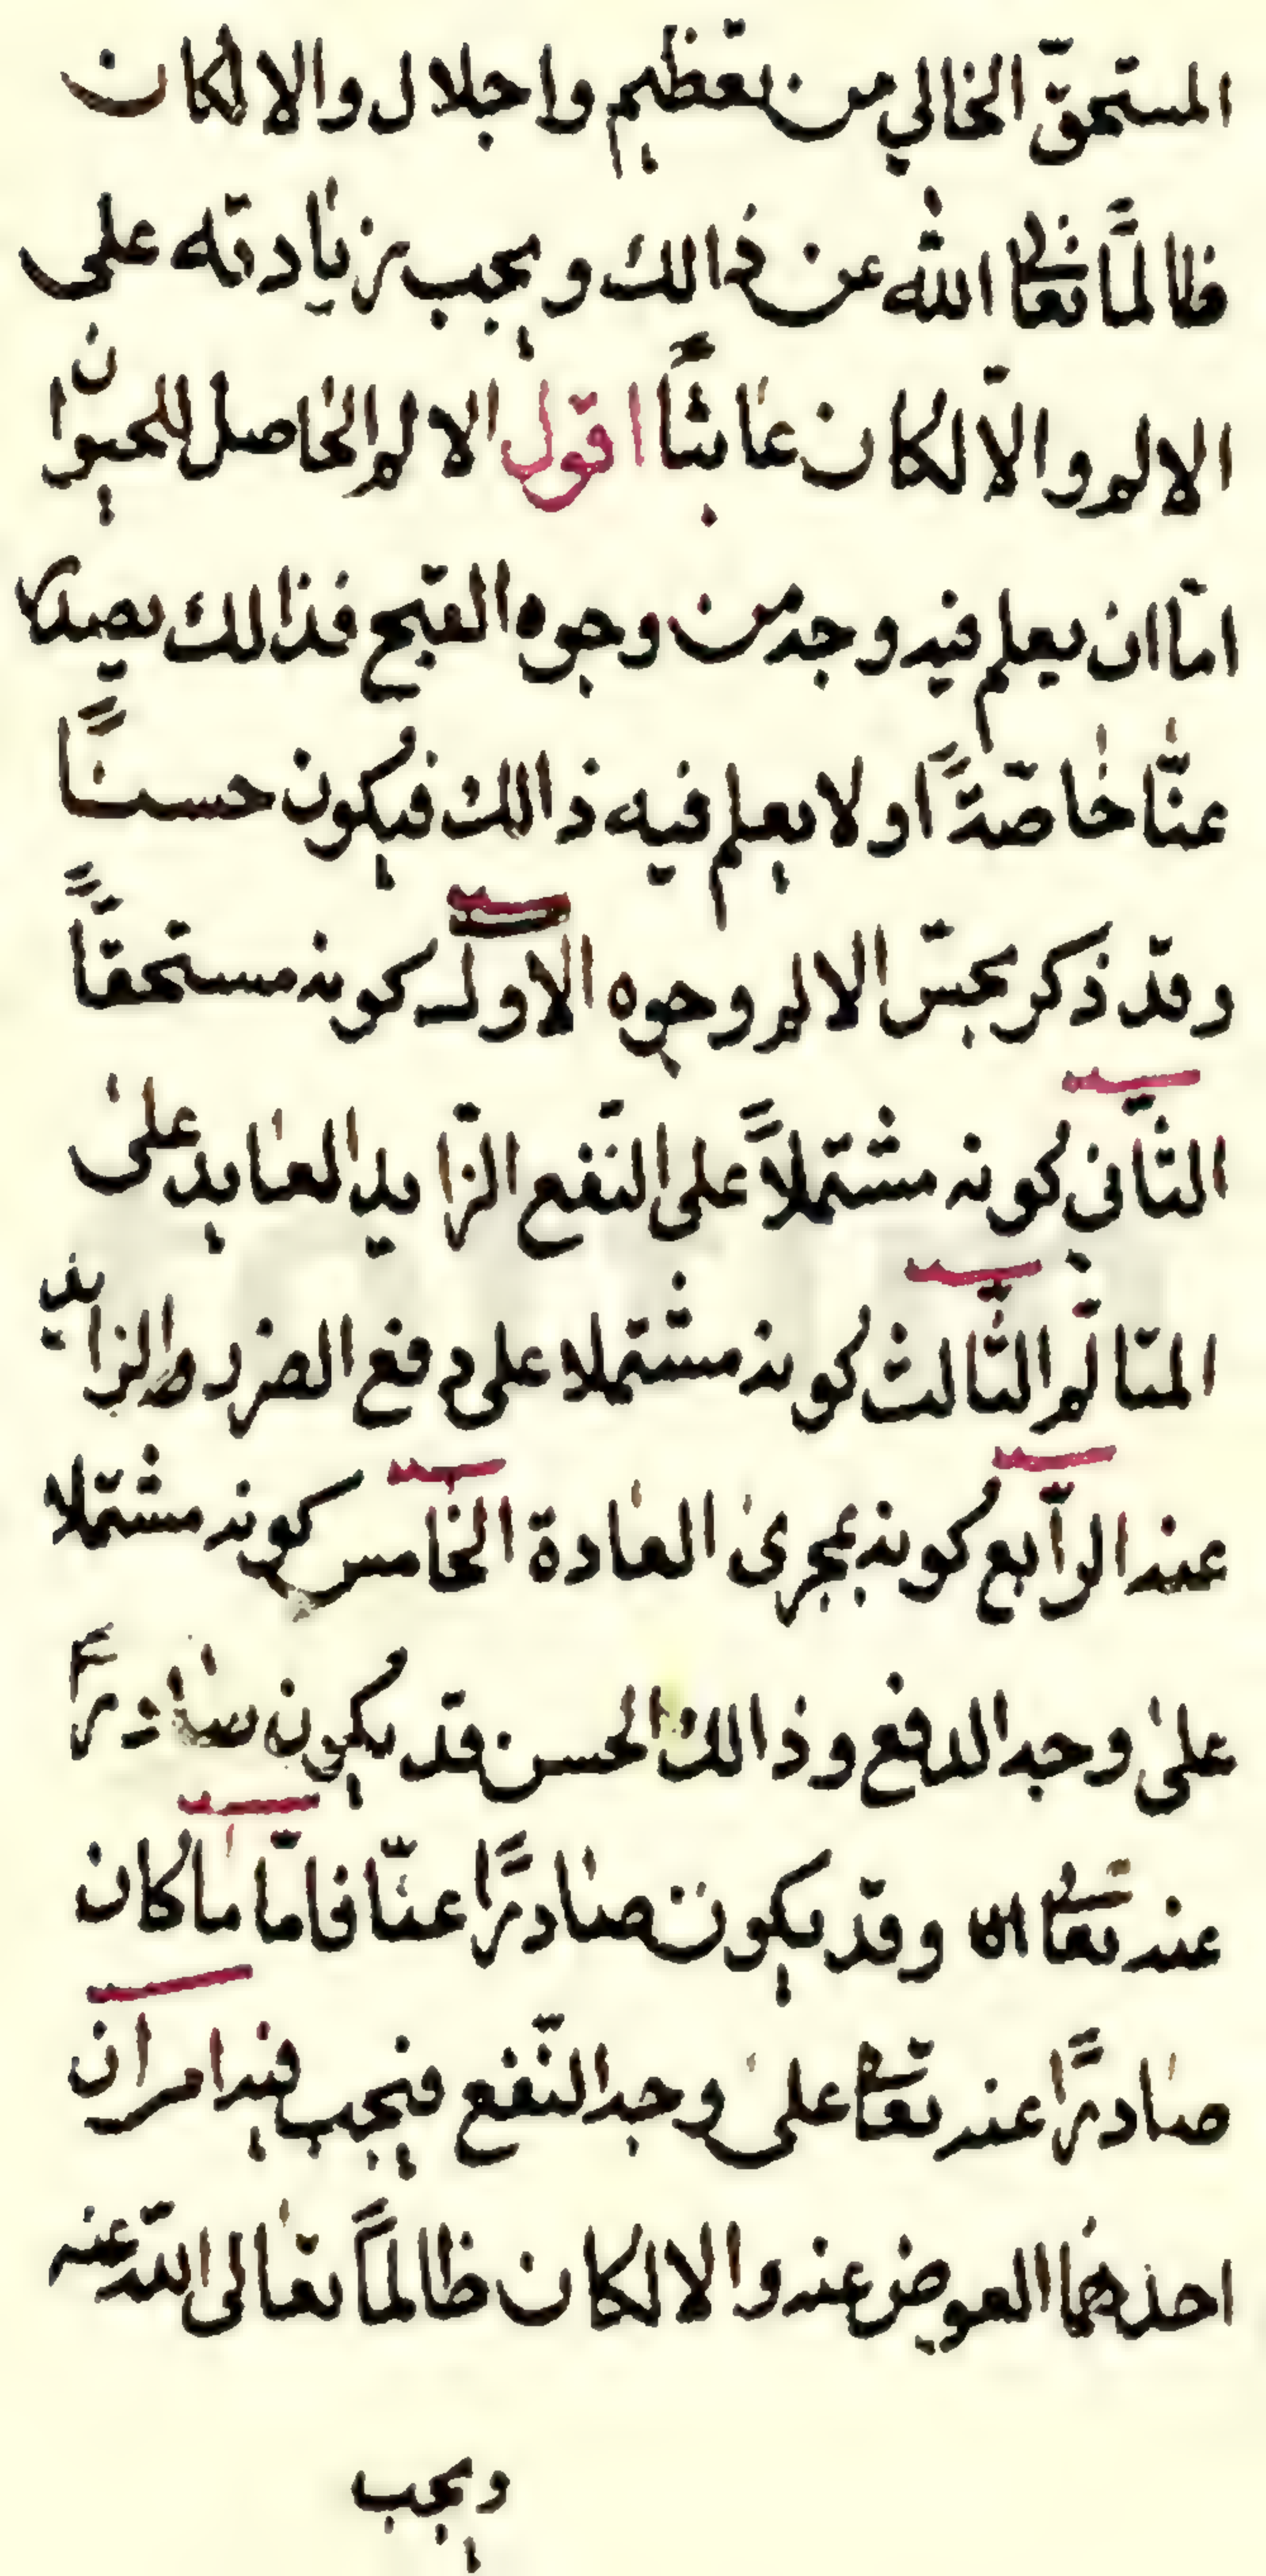 المستحقّ الخالي من تعظيم واجلال والا لكان
ظالمًا تعالى الله عن ذالك ويجب زيادته على
الالم والّا لكان عابثًا اقول الالم الحاصل للحيوان
امّا ان يعلم فيه وجه من وجوه القبح فذالك يصدر
عنّا خاصّةً او لا يعلم فيه ذالك فيكون حسنًا
وقد ذكر بحسّ الالم وجوه الاول كونه مستحقًّا
الثّاني كونه مشتملاً على النّفع الزّايد العايد على
المتالّم الثّالث كونه مشتملا على دفع الضرر الزايد
عنه الرّابع كونه بمجرى العادة الخامس كونه مشتملا
على وجه الدفع وذالك الحسن قد يكون صادرًا
عنه تعالى وقد يكون صادرًا عنّا فامّا ما كان
صادرًا عنه تعالى على وجه النّفع فيجب فيه امران
احدهما العوض عنه والا لكان ظالمًا تعالى اللّه عنه
ويجب